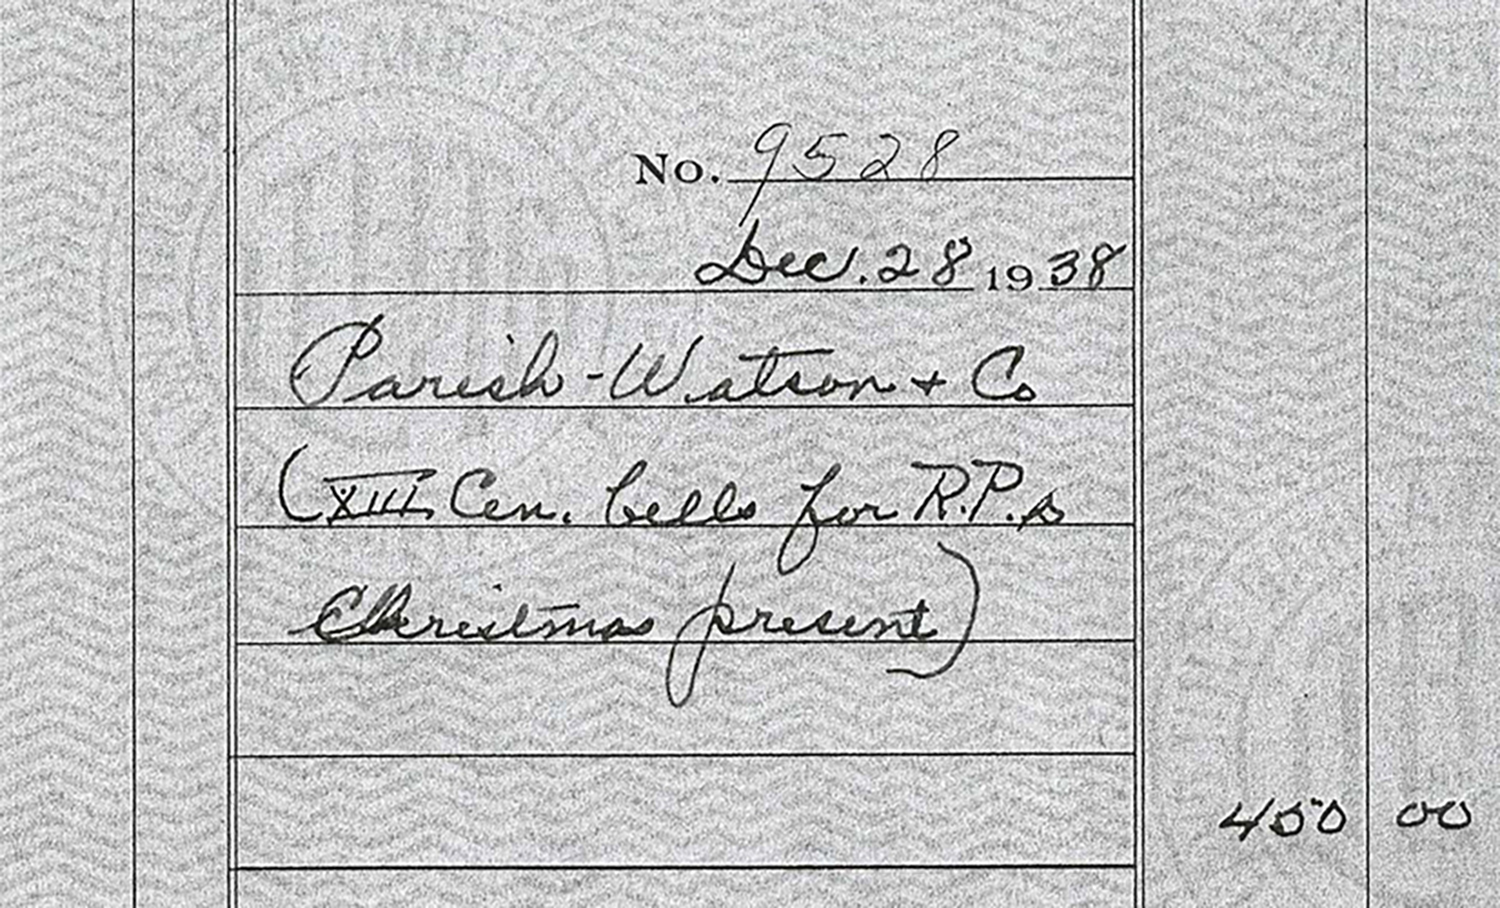 No. 9528
Dec. 28 1938
Parish-Watson + Co
(XIII Cen. bells for R.P.s
Christmas present)
450 00